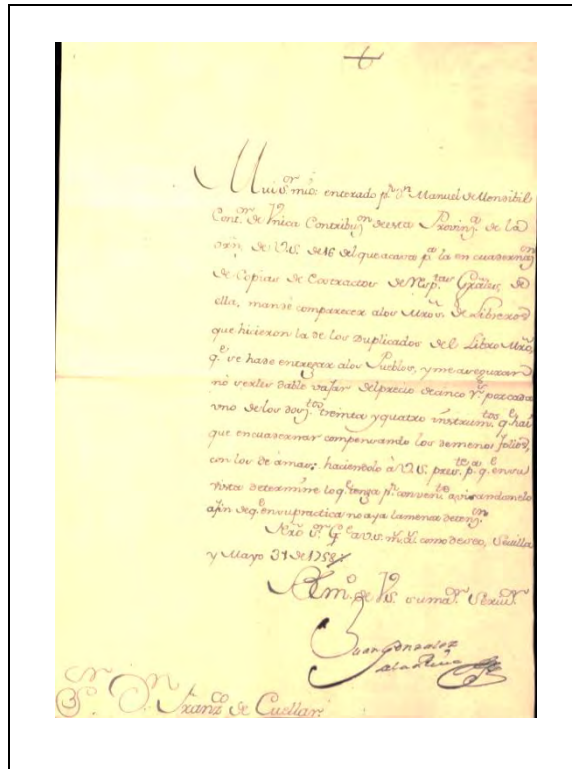 Muy s.or mío: enterado p.r D.n Manuel de Monsibil
Cont.or de Vnica Contribuz.on de esta Provinz.a de la
orn. de V.S. de 16 del que acava p.a la encuadernaz.on
de Copias de Extractos de Resp.tas Grales de
ella, mandé comparecer a los Mros. de Libreros
que hicieron la de los Duplicados del Libro Mro,
q.e se ha de entregar a los Pueblos, y me aseguraron
no serles dable vajar del precio de cinco r.s por cada
uno de los doz.tos treinta y quatro instrum.tos q.e hai
que encuadernar compensando los de menos folios,
con los de â mas; haciendolo â V.S. pres.te p.a q.e en su
vista determine lo q.e tenga p.r conven.te avisandomelo
a fin de q.e en su practica no aya la menor detenz.n
Nro S.or G.e a V.S. m.s a.s como deseo, Sevilla
y Mayo 31 de 1758
BLm.o de V.S. su ma.r Servi.r
Juan Gonzalez
S.or D.n Franz.co de Cuellar